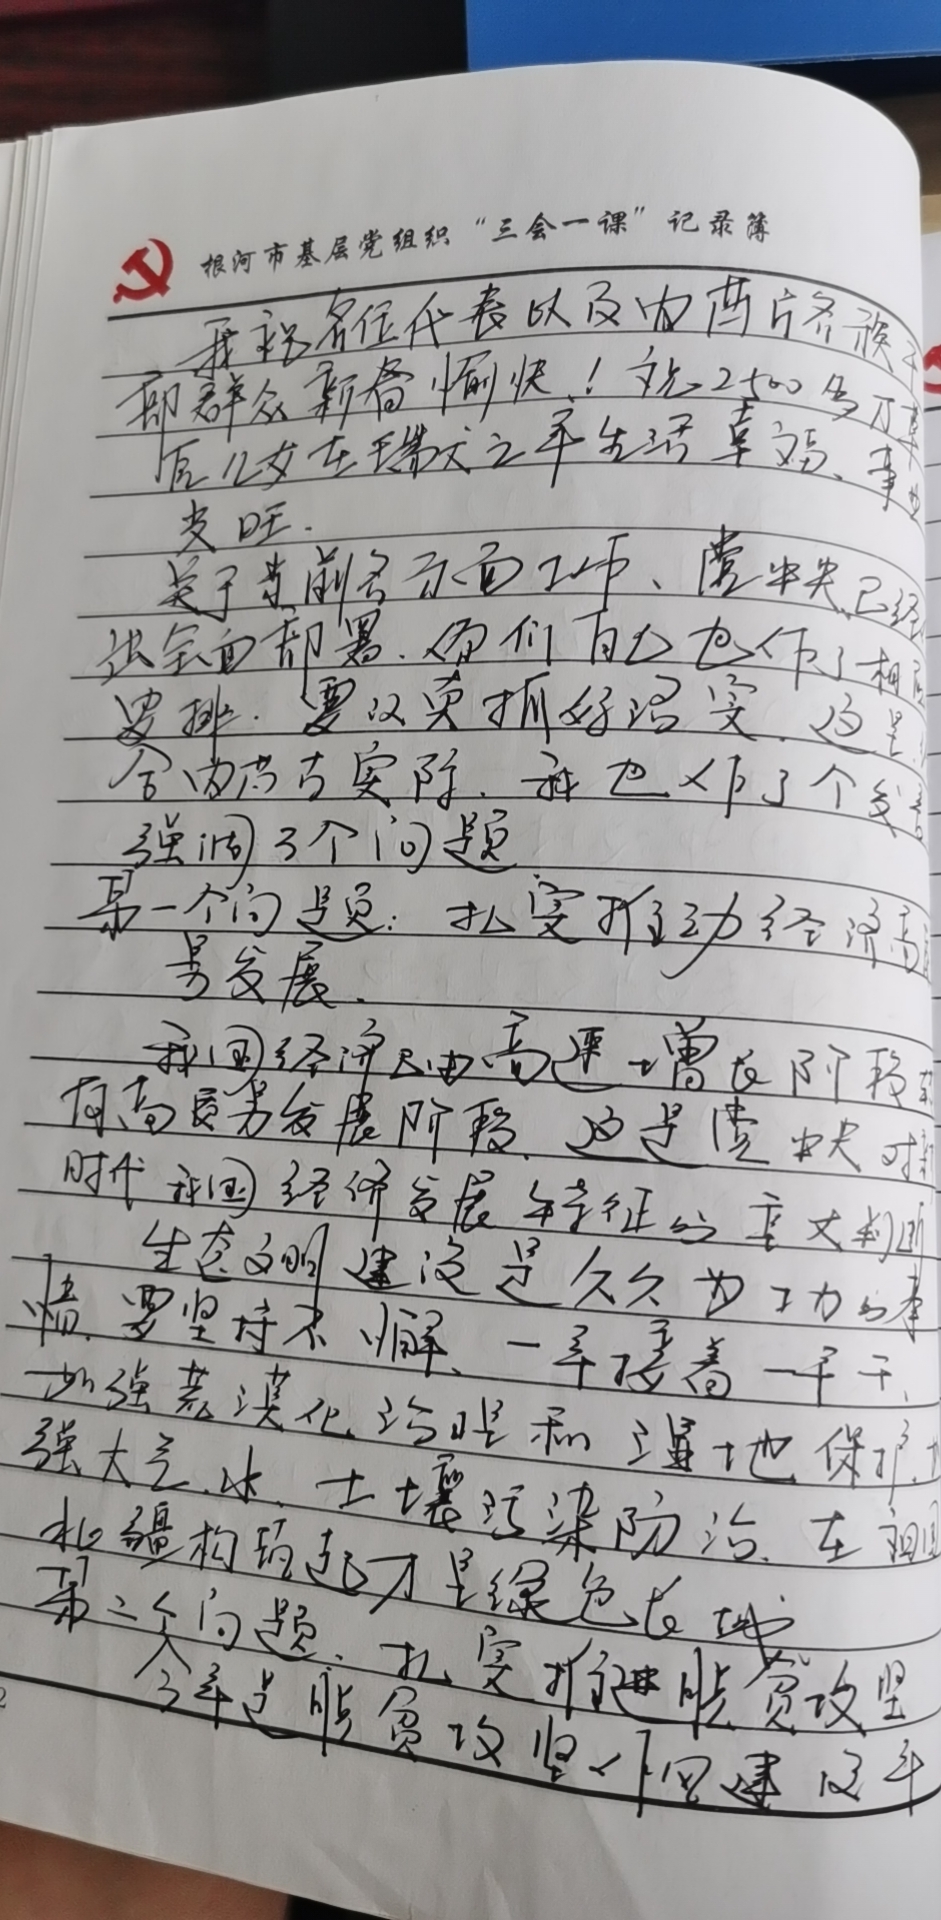 根河市基层党组织“三会一课”记录簿
我祝各位代表以及内蒙古各族干
部群众新春愉快！祝2500多万草
原儿女在瑞犬之年生活幸福、事业
兴旺.
关于当前各方面工作、党中央已经
出全面部署.你们自己也作了相应
安排.要认真抓好落实.这是
合内蒙古实际.我也作了个发言
强调3个问题
第一个问题：扎实推动经济高
量发展.
我国经济已由高速增长阶段
向高质量发展阶段.这是党中央对新
时代我国经济发展特征的重大判断
生态文明建设是久久为功的事
情.要坚持不懈、一年接着一年干、
加强荒漠化治理和湿地保护、加
强大气、水、土壤污染防治、在祖国
北疆构筑起万里绿色长城
第二个问题、扎实推进脱贫攻坚
今年是脱贫攻坚作风建设年
2